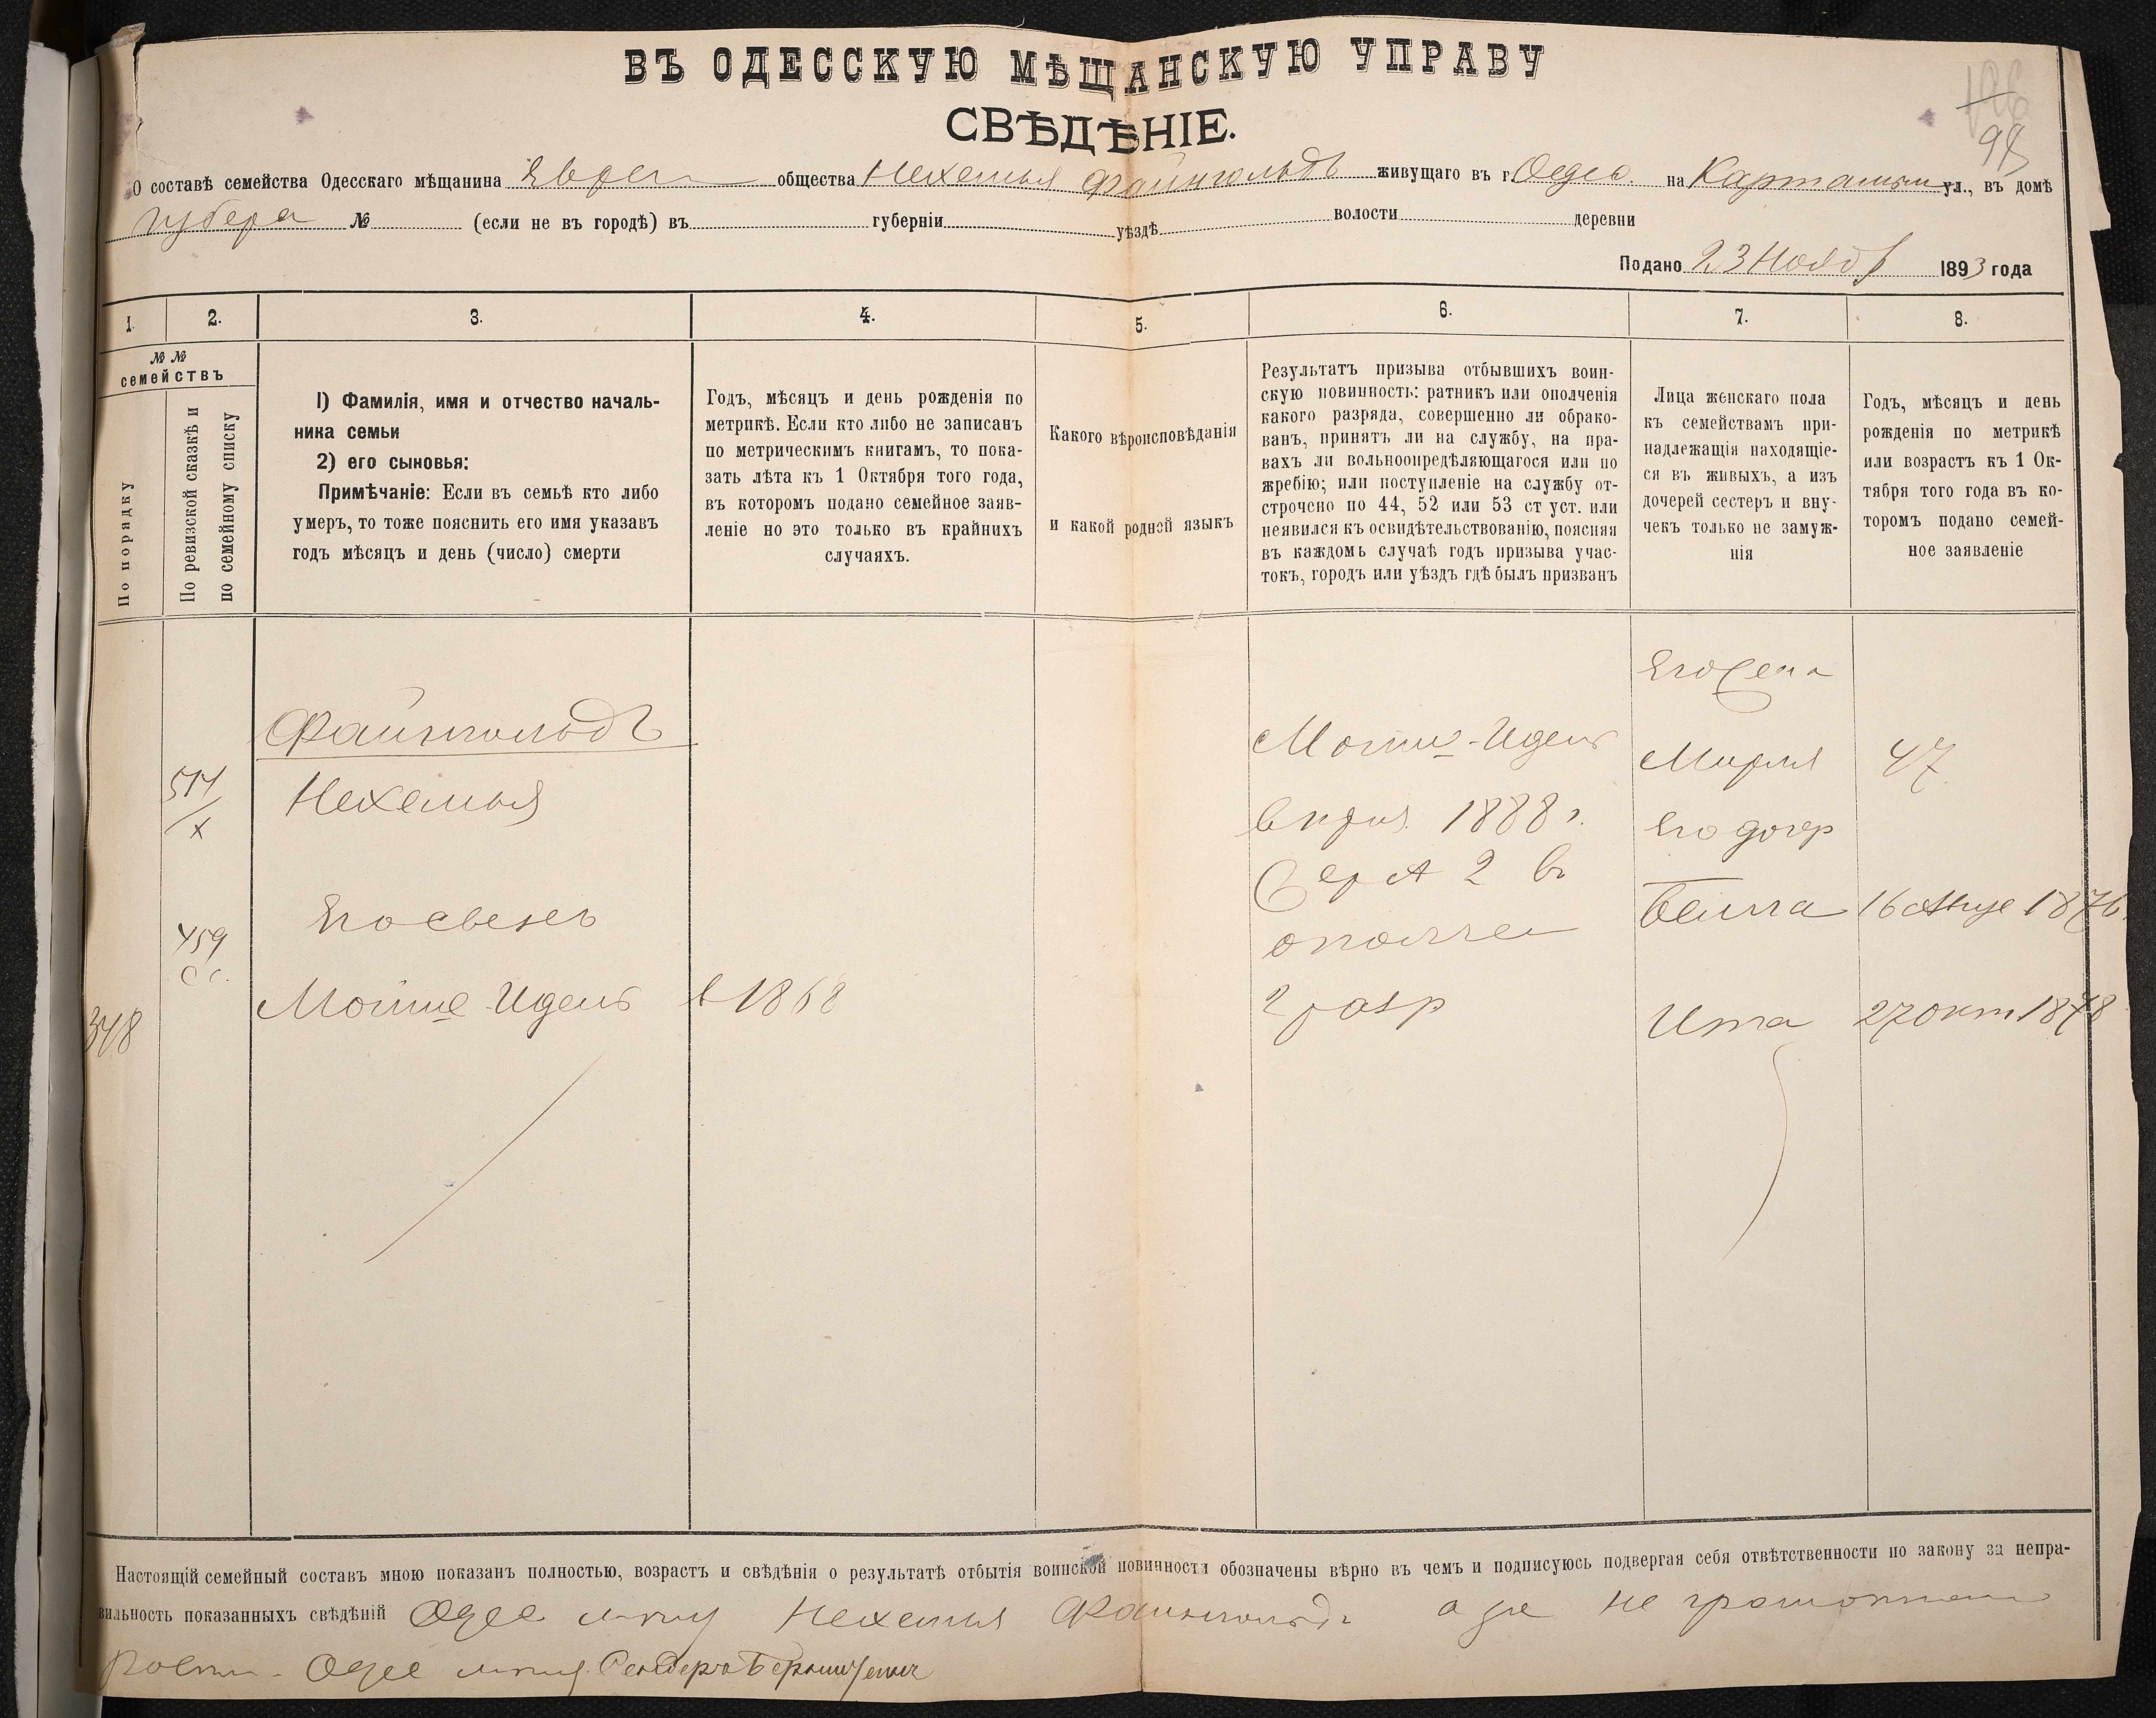 ВЪ ОДЕССКУЮ МѢЩАНСКУЮ УПРАВУ
СВѢДѢНІЕ.
98
О составѣ семейства Одесскаго мѣщанина Еврей общества Нехемья Файнгольдъ живущаго въ г. Одес. на ул., въ домѣ
Губера № (если не въ городѣ) въ губерніи уѣздѣ волости деревни
Подано 23 Ноябр 1893 года
1. 2. 3. 4. 5. 6. 7. 8.
№ №
семействъ
По порядку
По ревизской сказкѣ и
по семейному списку
1) Фамилія, имя и отчество началь-
ника семьи
2) его сыновья:
Примѣчаніе: Если въ семьѣ кто либо
умеръ, то тоже пояснить его имя указавъ
годъ мѣсяцъ и день (число) смерти
Годъ, мѣсяцъ и день рожденія по
метрикѣ. Если кто либо не записанъ
по метрическимъ книгамъ, то пока-
зать лѣта къ 1 Октября того года,
въ которомъ подано семейное заяв-
леніе но это только въ крайнихъ
случаяхъ.
Какого вѣроисповѣданія
и какой родной языкъ
Результатъ призыва отбывшихъ воин-
скую повинность: ратникъ или ополченія
какого разряда, совершенно ли обрако-
ванъ, принятъ ли на службу, на пра-
вахъ ли вольноопредѣляющагося или по
жребію; или поступленіе на службу от-
строчено по 44, 52 или 53 ст уст. или
неявился къ освидѣтельствованію, поясняя
въ каждомъ случаѣ годъ призыва учас-
токъ, городъ или уѣздъ гдѣ былъ призванъ
Лица женскаго пола
къ семействамъ при-
надлежащія находящіе-
ся въ живыхъ, а изъ
дочерей сестеръ и вну-
чекъ только не замуж-
нія
Годъ, мѣсяцъ и день
рожденія по метрикѣ
или возрастъ къ 1 Ок-
тября того года въ ко-
торомъ подано семей-
ное заявленіе
348
514
х
459
Сс.
Файнгольдъ
Нехемья
Его
Мойше Идель
в 1868
Мойше-Идель
1888 г.
2 въ
ополчен
2 разр
Его жена
Мирля 47
Его дочер
Бейла 16 1876
Ита 27 окт 1878
Настоящій семейный составъ мною показанъ полностью, возрастъ и свѣдѣнія о результатѣ отбытія воинской повинности обозначены вѣрно въ чемъ и подписуюсь подвергая себя отвѣтственности по закону за непра-
вильность показанныхъ свѣдѣній Одес Нехемья Файнгольдъ а не
Одес